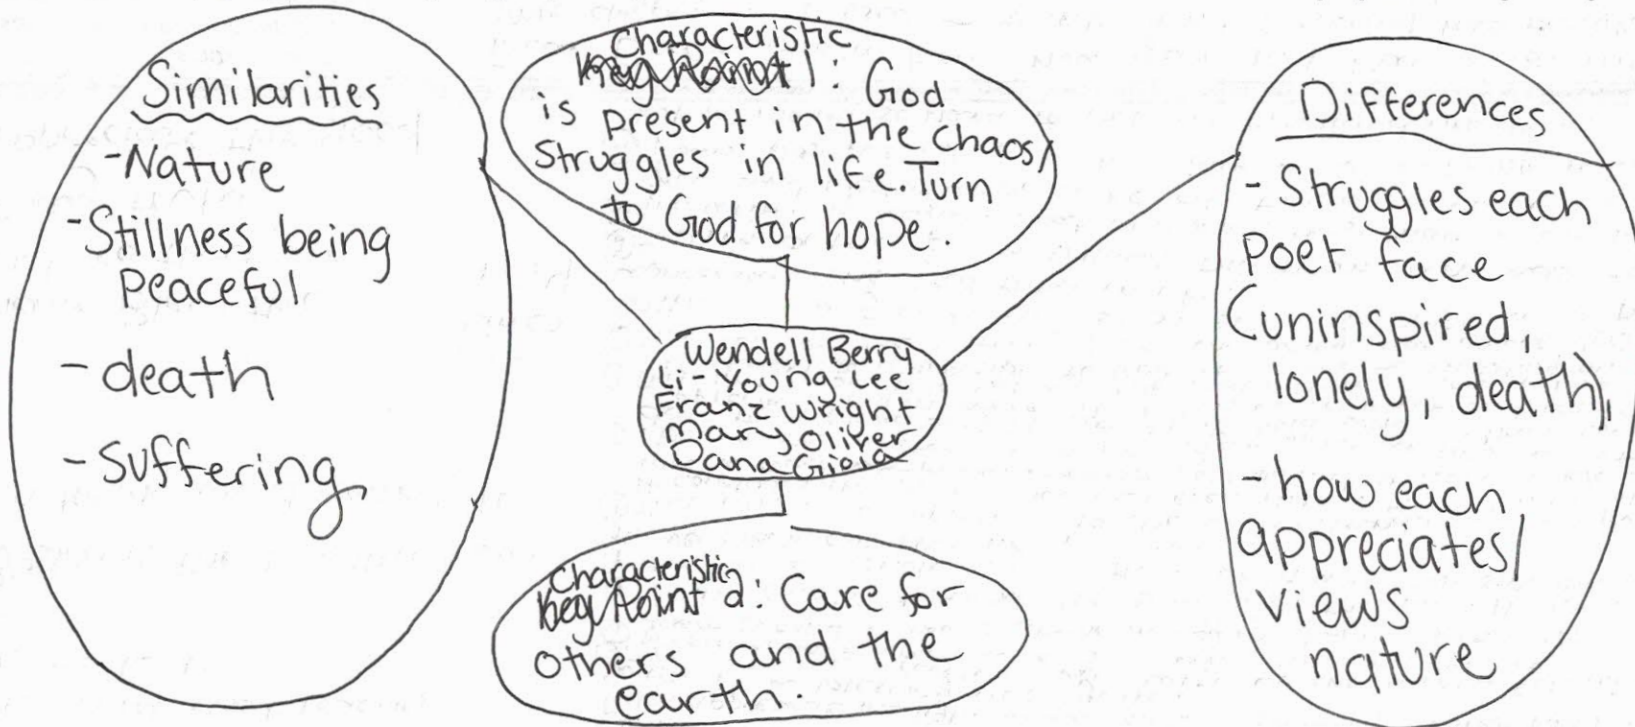 Similarities
-Nature
-Stillness being
Peaceful
-death
-suffering
Characteristic
Key Point 1: God
is present in the chaos/
struggles in life. Turn
to God for hope.
Wendell Berry
Li-Young Lee
Franz Wright
Mary Oliver
Dana Gioia
Characteristic
Key Point 2: Care for
others and the
earth.
Differences
- Struggles each
poet face
(uninspired,
lonely, death),
- how each
appreciates/
views
nature